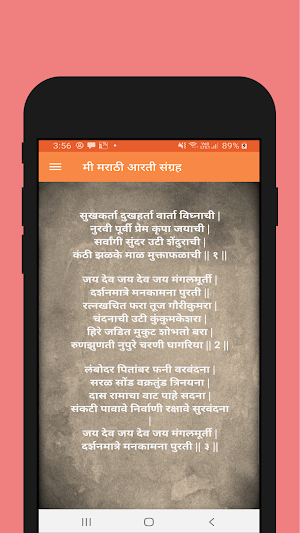 3:56
89%
मी मराठी आरती संग्रह
सुखकर्ता दुखहर्ता वार्ता विघ्नाची |
नुरवी पूर्वी प्रेम कृपा जयाची |
सर्वांगी सुंदर उटी शेंदुराची |
कंठी झळके माळ मुक्ताफळाची || १ ||
जय देव जय देव जय मंगलमूर्ती |
दर्शनमात्रे मनकामना पुरती ||
रत्नखचित फरा तूज गौरीकुमरा |
चंदनाची उटी कुंकुमकेशरा |
हिरे जडित मुकुट शोभतो बरा |
रुणझुणती नुपुरे चरणी घागरिया || 2 ||
लंबोदर पितांबर फनी वरवंदना |
सरळ सोंड वक्रतुंड त्रिनयना |
दास रामाचा वाट पाहे सदना |
संकटी पावावे निर्वाणी रक्षावे सुरवंदना
|
जय देव जय देव जय मंगलमूर्ती |
दर्शनमात्रे मनकामना पुरती || ३ ||